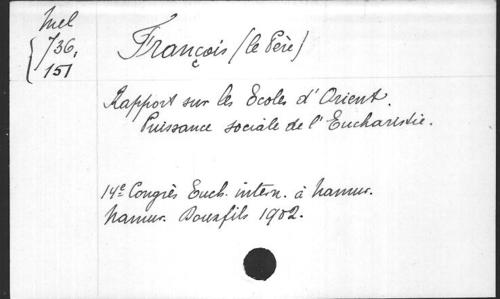 Mel
736,
151
François (le Père)
Rapport sur les Ecoles d'Orient.
Puissance sociale de l'Eucharistie.
14e Congrès Euch. intern. à Namur.
Namur. Douxfils 1902.